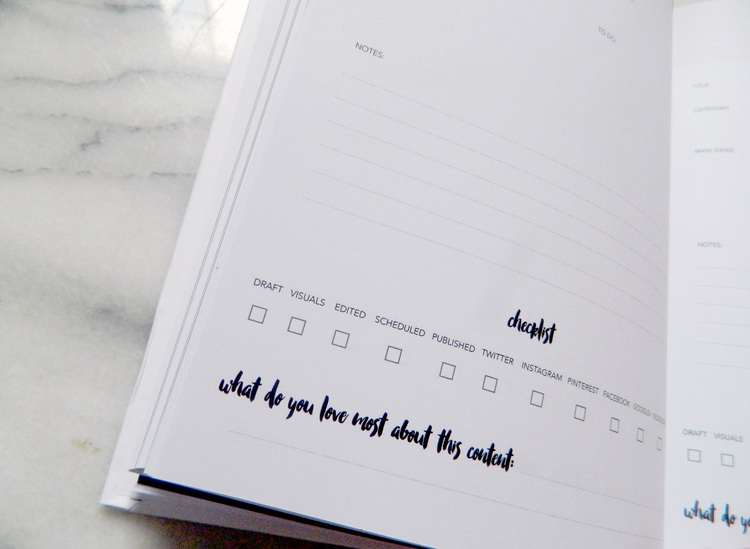 TO DO:
NOTES:
checklist
DRAFT VISUALS EDITED SCHEDULED PUBLISHED TWITTER INSTAGRAM PINTEREST FACEBOOK GOOGLE+
what do you love most about this content:
TITLE:
CATEGORY:
MAIN IDEAS:
NOTES:
DRAFT VISUALS
what do yo